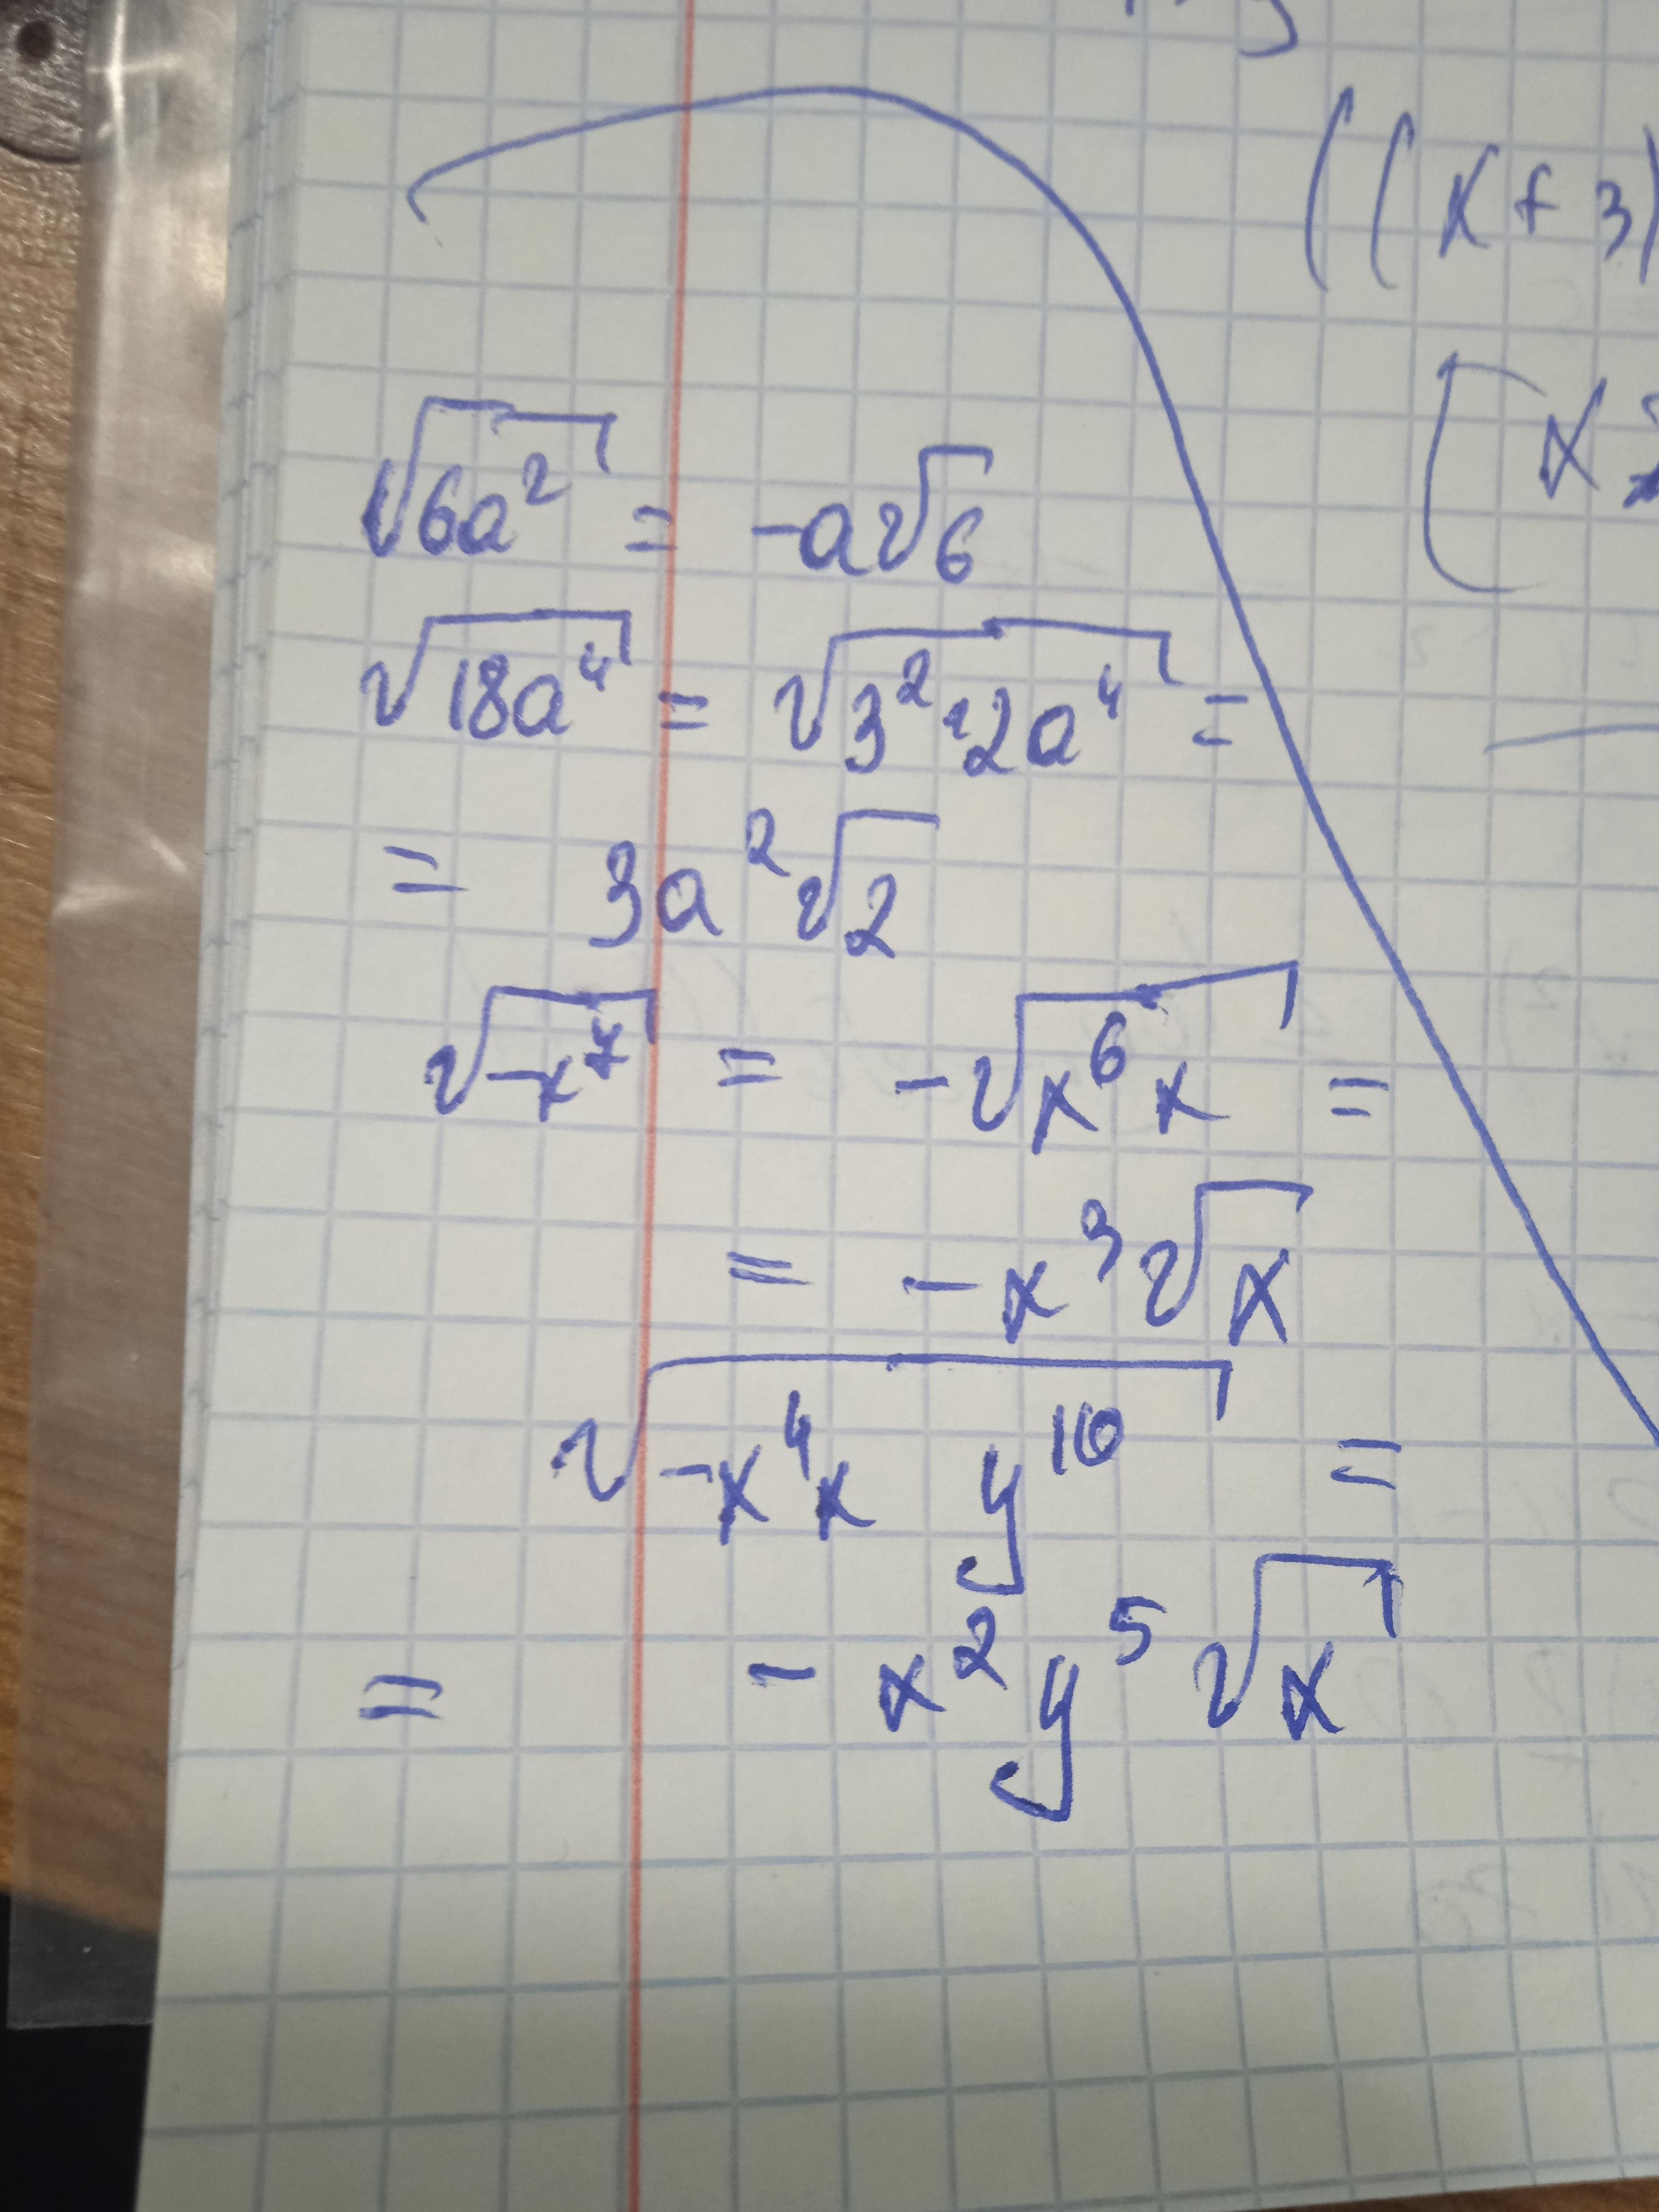 ((x+3)
[x
√6a² = -a√6
√18a⁴ = √3²·2a⁴ =
= 3a²√2
√-x⁷ = -√x⁶x =
= -x³√x
√-x⁴x y¹⁰ =
= -x²y⁵√x